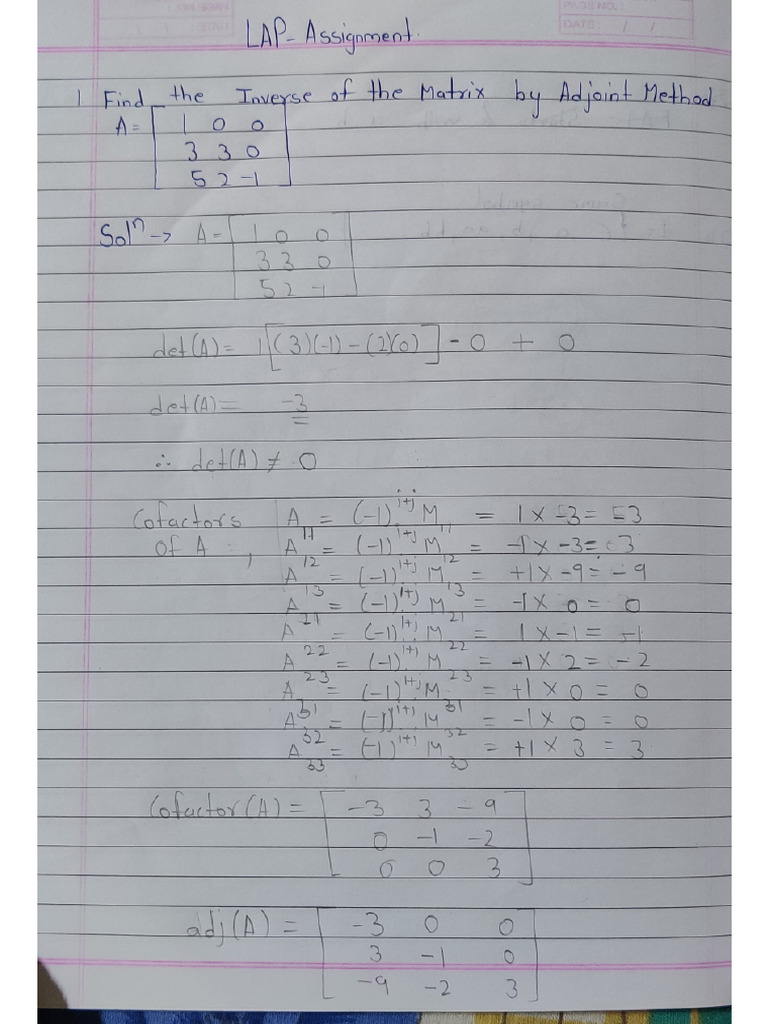 PAGE NO.:
DATE: / /
LAP-Assignment.
1 Find the Inverse of the Matrix by Adjoint Method
A = [ 1 0 0
3 3 0
5 2 -1 ]
Solⁿ → A = [ 1 0 0
3 3 0
5 2 -1 ]
det(A) = 1[(3)(-1) - (2)(0)] - 0 + 0
det(A) = -3
∴ det(A) ≠ 0
Cofactors of A :, A₁₁ = (-1)^{i+j} M₁₁ = 1 × -3 = -3
A₁₂ = (-1)^{i+j} M₁₂ = -1 × -3 = 3
A₁₃ = (-1)^{i+j} M₁₃ = +1 × -9 = -9
A₂₁ = (-1)^{i+j} M₂₁ = -1 × 0 = 0
A₂₂ = (-1)^{i+j} M₂₂ = 1 × -1 = -1
A₂₃ = (-1)^{i+j} M₂₃ = -1 × 2 = -2
A₃₁ = (-1)^{i+j} M₃₁ = +1 × 0 = 0
A₃₂ = (-1)^{i+j} M₃₂ = -1 × 0 = 0
A₃₃ = (-1)^{i+j} M₃₃ = +1 × 3 = 3
Cofactor(A) = [ -3 3 -9
0 -1 -2
0 0 3 ]
adj(A) = [ -3 0 0
3 -1 0
-9 -2 3 ]